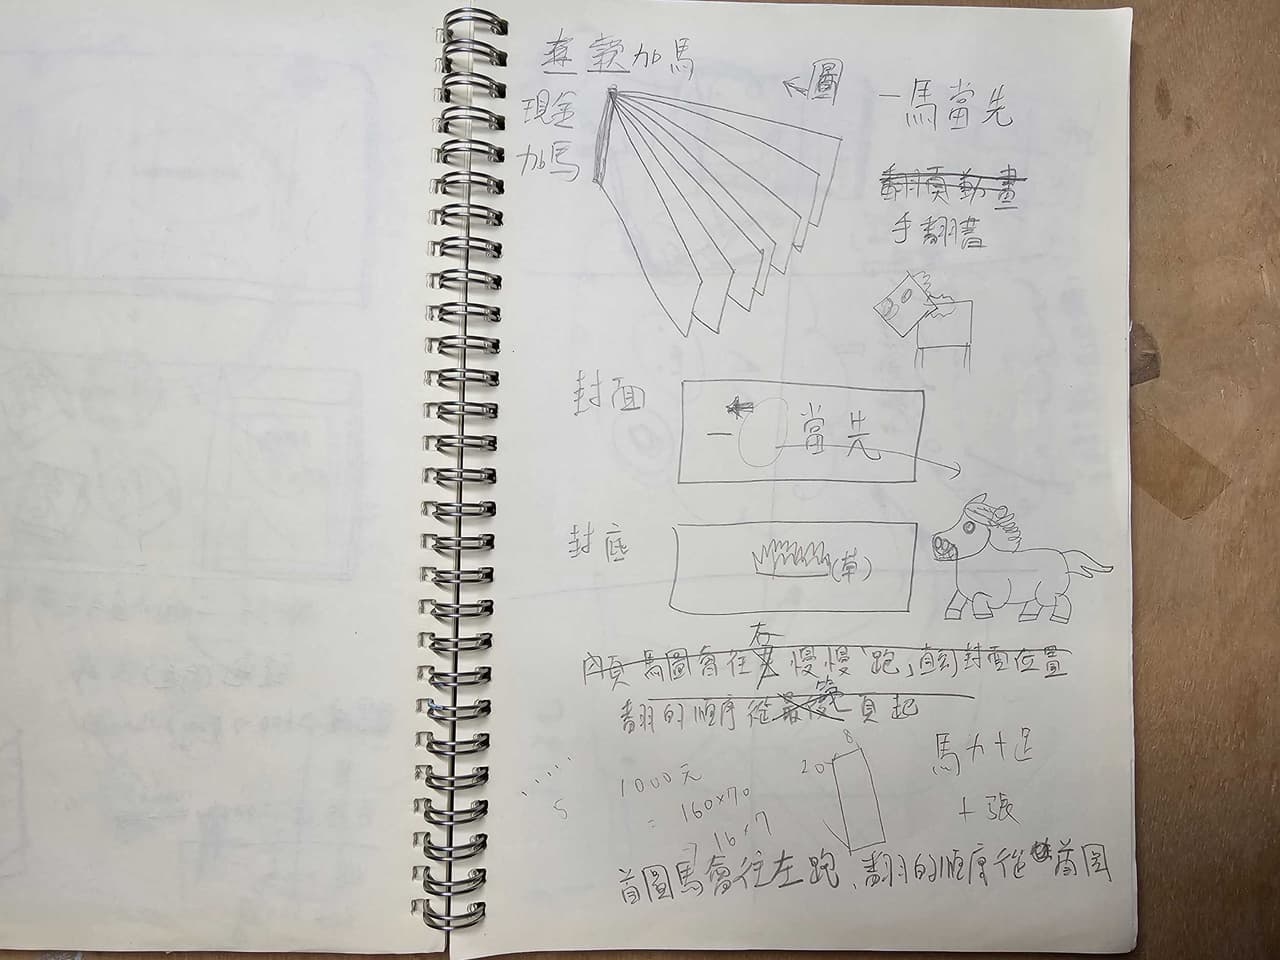 存款加馬
現金
加馬
←圖
一馬當先
翻頁動畫
手翻書
封面
一 當先
封底
(草)
右
內頁馬圖會往 慢慢「跑」直到封面位置
翻的順序從最後頁起
1000元
= 160×70
16×7
S
8
20
馬力十足
十張
首圖馬會往左跑、翻的順序從 首圖